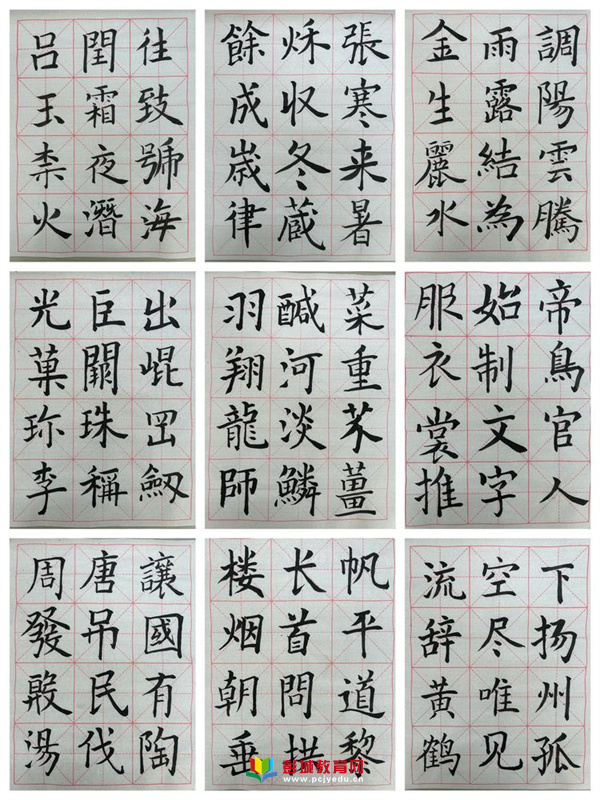 往致號海
閏霜夜潛
呂玉柰火
張寒来暑
秌収冬蔵
餘成歳律
調陽雲騰
雨露結為
金生麗水
出崐岡劒
巨闕珠稱
光菓珎李
菜重芥薑
鹹河淡鱗
羽翔龍師
帝鳥官人
始制文字
服衣裳推
讓國有陶
唐吊民伐
周發殷湯
帆平道黎
长首問拱
楼烟朝垂
下扬州孤
空尽唯见
流辞黄鹤
彭城教育网
www.pcjyedu.cn